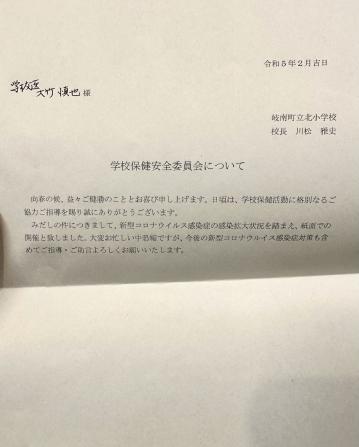 令和５年２月吉日
学校医 大竹 慎也 様
岐南町立北小学校
校長　川松　雅史
学校保健安全委員会について
向春の候、益々ご健勝のこととお喜び申し上げます。日頃は、学校保健活動に格別なるご
協力ご指導を賜り誠にありがとうございます。
みだしの件につきまして、新型コロナウイルス感染症の感染拡大状況を踏まえ、紙面での
開催と致しました。大変お忙しい中恐縮ですが、今後の新型コロナウルイス感染症対策も含
めてご指導・ご助言よろしくお願いいたします。